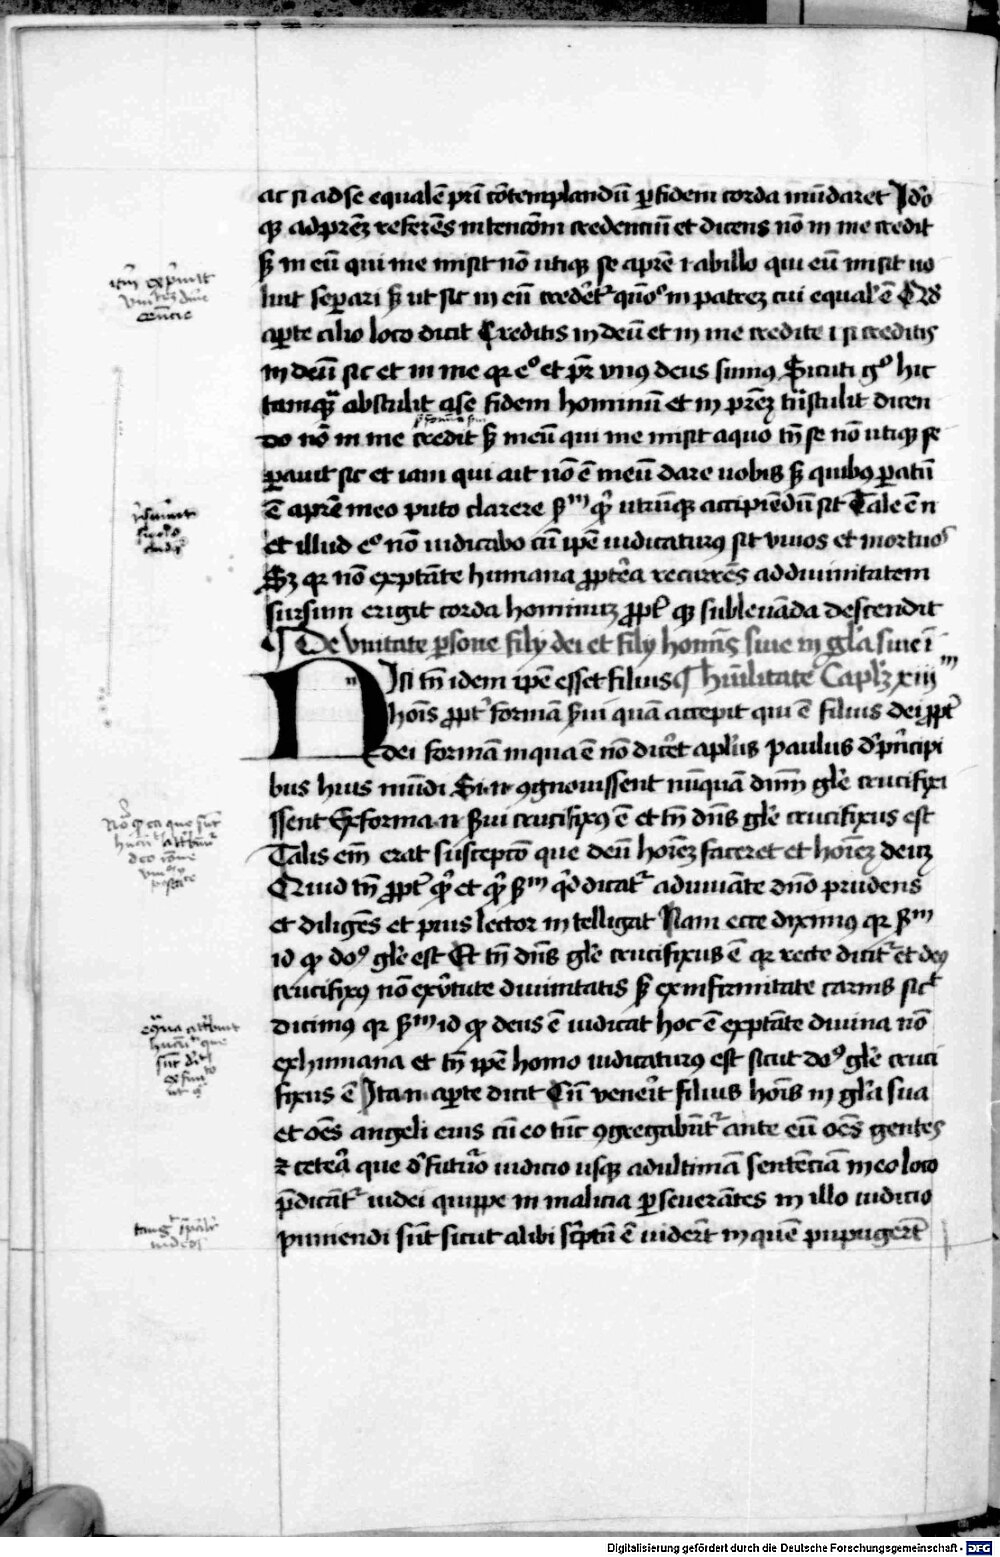 ac si ad se equalē pr̄i cōtemplandū ꝑ fidem corda mūdaret Ido
qꝫ ad pr̄em referēs intencōm credenciū et dicens nō in me credit
sꝫ in eū qui me misit nō utiqꝫ se a pr̄e i ab illo qui eū misit uo
luit seꝑari sꝫ ut sic in eū crederet᷑ quō in patrez cui equal' ē Qđ
aꝑte alio loco dicit Creditis in deū et in me credite i si creditis
in deū sic et in me qr ego et pr̄ vnꝰ deus sumꝰ Sicuti gͦ hic
tamqꝫ abstulit a se fidem hominū et in pr̄ez trāstulit dicen
do nō in me credit sꝫ in eū qui me misit a quo tn̄ se nō utiqꝫ se
ꝑauit sic et iam qui ait nō ē meū dare uobis sꝫ quibꝰ ꝑatū
ē a pr̄e meo puto clarere sm̄ qꝫ utrūqꝫ accipiendū sit Tale ē n
et illud eͦ nō iudicabo cū ip̄e iudicaturꝰ sit viuos et mortuos
Sꝫ qr nō ex ptāte humana ꝓpterea recurrēs ad diuinitatem
sursum erigit corda hominuꝫ ꝓpt' qꝫ subleuāda descendit
¶ De vnitate ꝑsone filij dei et filij homīs siue in gl'a siue ī
Nisi tn̄ idem ip̄e esset filius ¶ hūilitate Capl'ꝫ xiij m
hoīs ꝓpt' formā s̄ui quā accepit qui ē filius dei ꝓpt'
dei formā in qua ē nō diceret apl'us Paulus d' prīcipi
bus huius mūdi Si n ꝯgnouissent nūquā dnm̄ gl'e crucifixi
ssent Ex forma n s̄ui crucifixꝰ ē et tn̄ dn̄s gl'e crucifixus est
Talis em̄ erat suscepto que deū hoīez faceret et hoīez deuꝫ
Quid tn̄ ꝓpt' qꝫ et qꝫ sm̄ qd dicat᷑ adiuuāte dnō prudens
et diligēs et pius lector intelligat Nam ecce diximꝰ qr sm̄
id qꝫ doꝰ gl'e est Et tn̄ dn̄s gl'e crucifixus ē qr recte dicit᷑ et deꝰ
crucifixꝰ nō ex v̄tute diuinitatis sꝫ ex infirmitate carnis sict
dicimꝰ qr sm̄ id qꝫ deus ē iudicat hoc ē ex ptāte diuina nō
ex humana et tn̄ ip̄e homo iudicaturꝰ est sicut doꝰ gl'e cruci
fixus ē Ita n aꝑte dicit Cū venerit filius hoīs in gl'a sua
et oēs angeli eius cū eo tūc ꝯgregabūt᷑ ante eū oēs gentes
et cetea que d' futuro iudicio usqꝫ ad ultimā sentēciā in eo loco
p̄dicāt᷑ iudei quippe in malicia ꝑseuerātes in illo iudicio
puniendi sūt sicut alibi sc̄ptū ē uidērt in quē pupugert